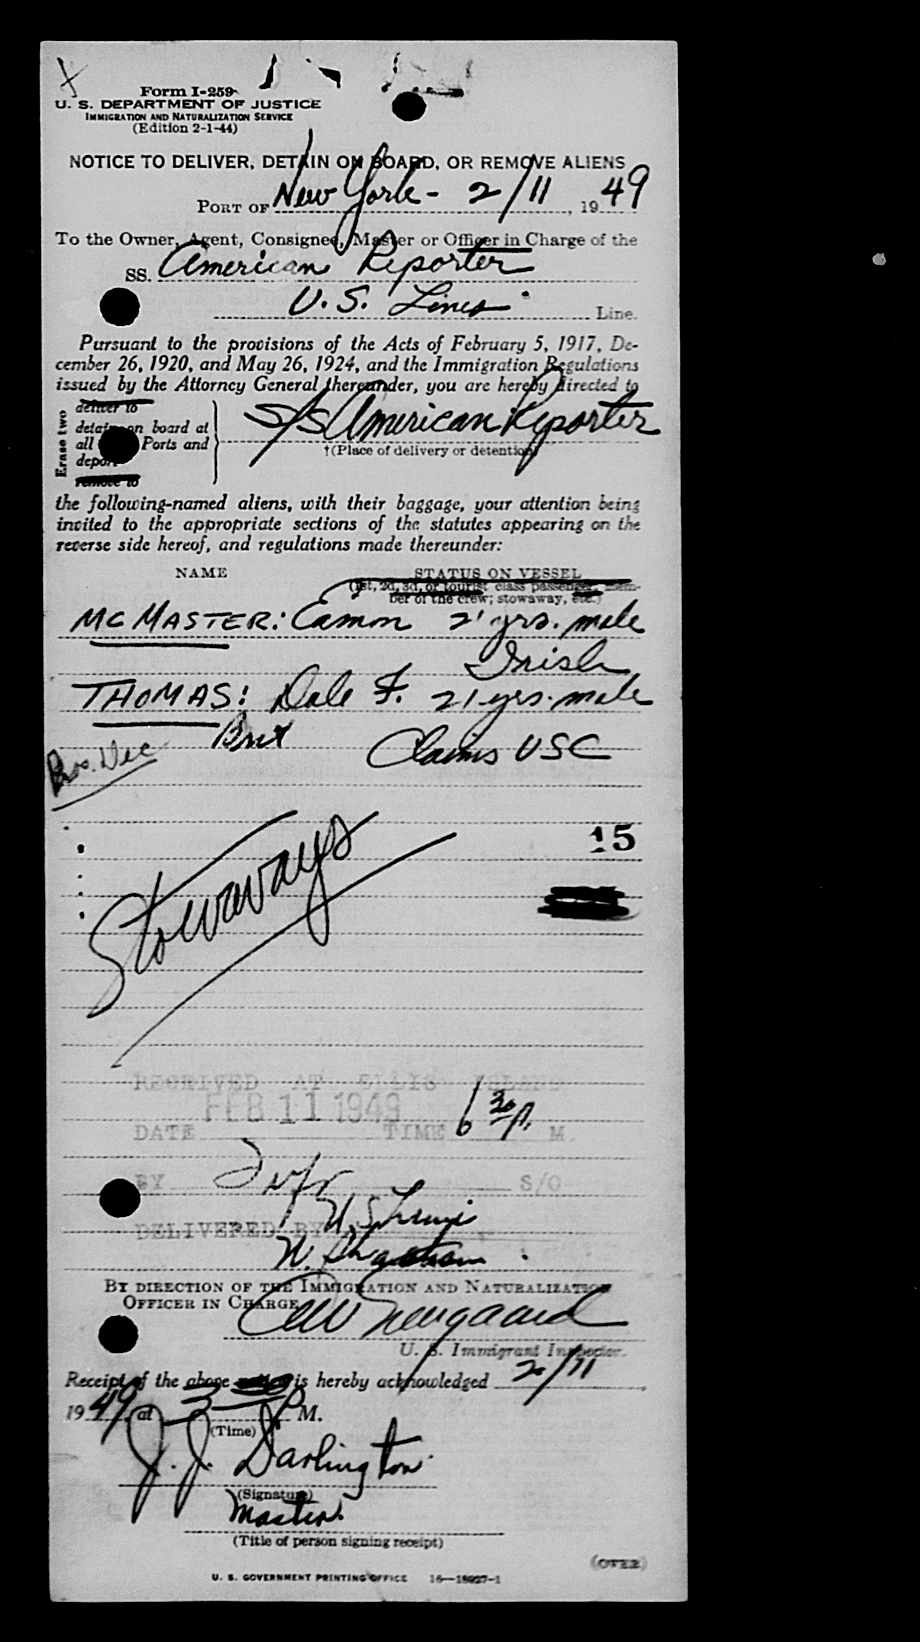 Form I-259
U. S. DEPARTMENT OF JUSTICE
IMMIGRATION AND NATURALIZATION SERVICE
(Edition 2-1-44)
NOTICE TO DELIVER, DETAIN ON BOARD, OR REMOVE ALIENS
PORT OF New York - 2/11, 1949
To the Owner, Agent, Consignee, Master or Officer in Charge of the
SS. American Reporter
U.S. Lines Line.
Pursuant to the provisions of the Acts of February 5, 1917, De-
cember 26, 1920, and May 26, 1924, and the Immigration Regulations
issued by the Attorney General thereunder, you are hereby directed to
Erase two
deliver to
detain on board at
all Ports and
deport
remove to
S/S American Reporter
†(Place of delivery or detention)
the following-named aliens, with their baggage, your attention being
invited to the appropriate sections of the statutes appearing on the
reverse side hereof, and regulations made thereunder:
NAME STATUS ON VESSEL
(1st, 2d, 3d, or tourist class passenger, mem-
ber of the crew; stowaway, etc.)
MCMASTER: Eamon 21 yrs. male
Irish
THOMAS: Dale F. 21 yrs. male
Brit Claims USC
15
Stowaways
RECEIVED AT ELLIS ISLAND
FEB 11 1949
DATE TIME 6 30 P. M.
BY S/O
DELIVERED BY
BY DIRECTION OF THE IMMIGRATION AND NATURALIZATION
OFFICER IN CHARGE
U. S. Immigrant Inspector.
Receipt of the above notice is hereby acknowledged 2/11
1949 at 3 P M.
(Time)
J. J. Darlington
(Signature)
Master.
(Title of person signing receipt)
(OVER)
U. S. GOVERNMENT PRINTING OFFICE 16—18927-1